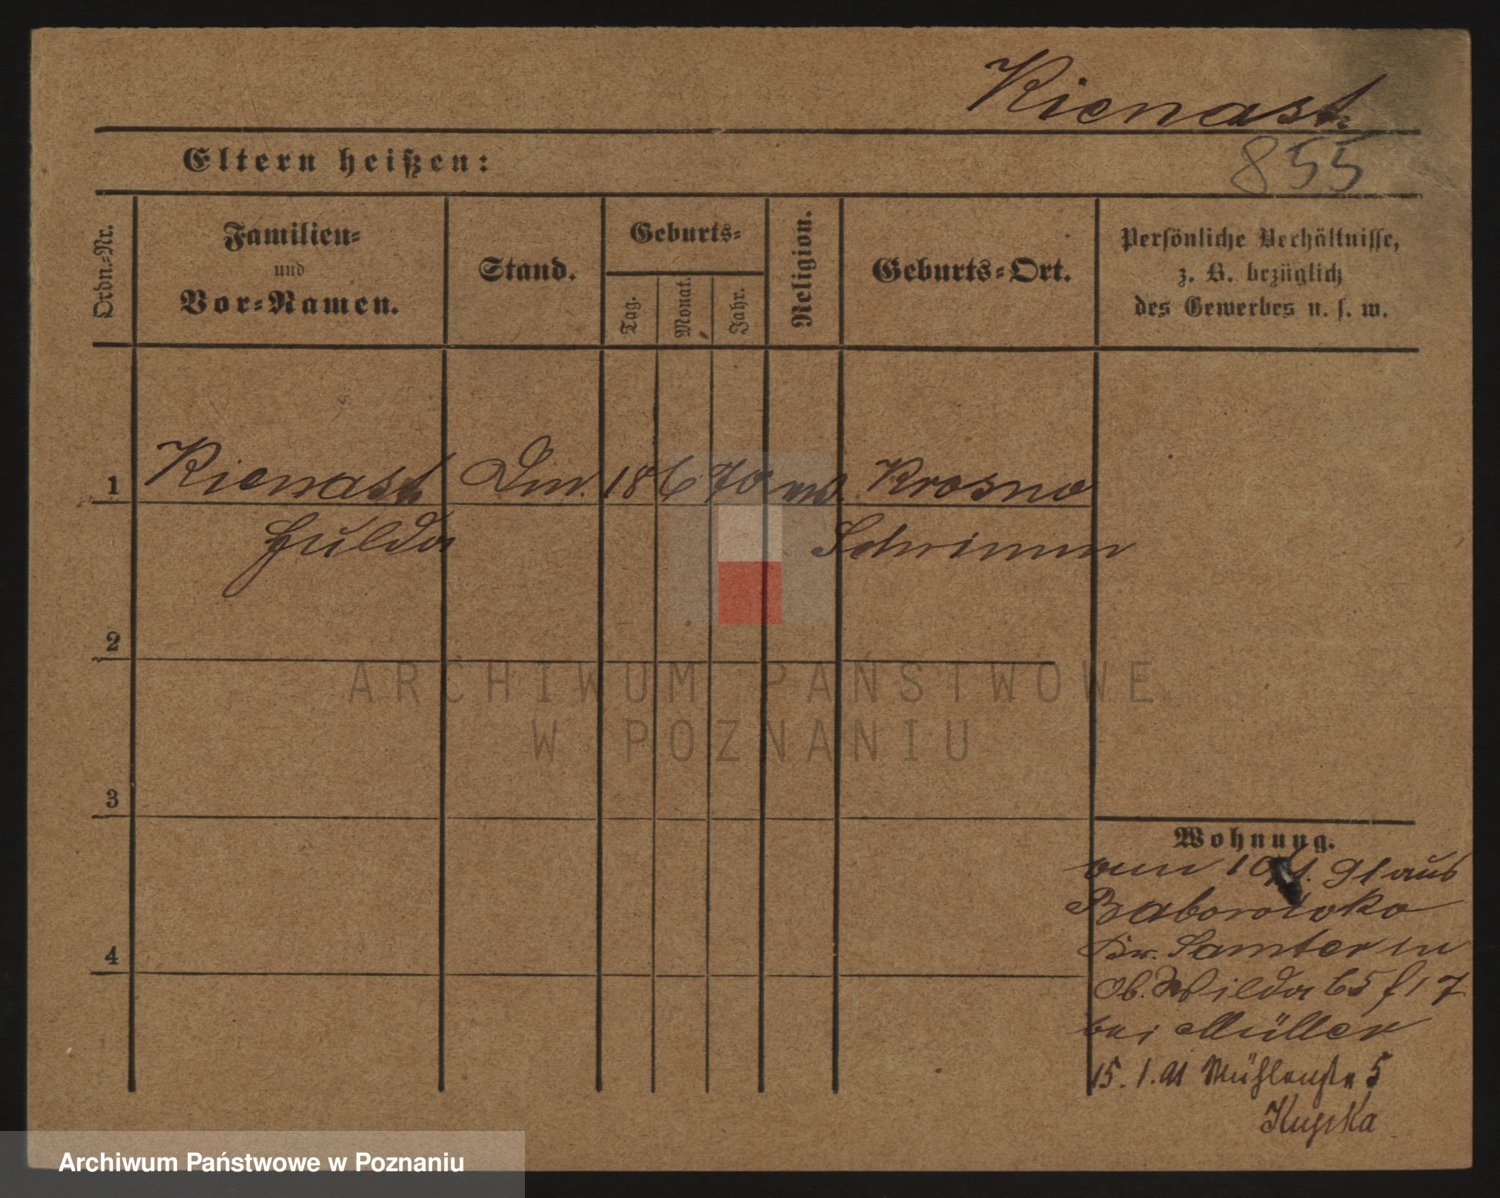 Kienast
855
Eltern heißen:
Ordn.-Nr.
Familien-
und
Vor-Namen.
Stand.
Geburts-
Tag.
Monat.
Jahr.
Religion.
Geburts-Ort.
Persönliche Verhältnisse,
z. B. bezüglich
des Gewerbes u. s. w.
1 Kienast Din. 18 6 70 Krosno
Hulda Schrimm
2
ARCHIWUM PAŃSTWOWE
W POZNANIU
3
4
Wohnung.
am 10/1. 91 aus
Baborowko
Kr. Samter in
Ob. Wilda 65 f 17
bei Müller
15. 1. 91 Mühlenstr 5
Kupka
Archiwum Państwowe w Poznaniu